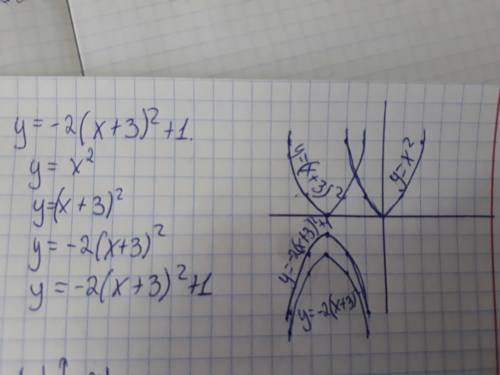 y = -2(x+3)²+1.
y = x²
y=(x+3)²
y = -2(x+3)²
y = -2(x+3)²+1
y=(x+3)²
y=x²
y=-2(x+3)²+1
y=-2(x+3)²